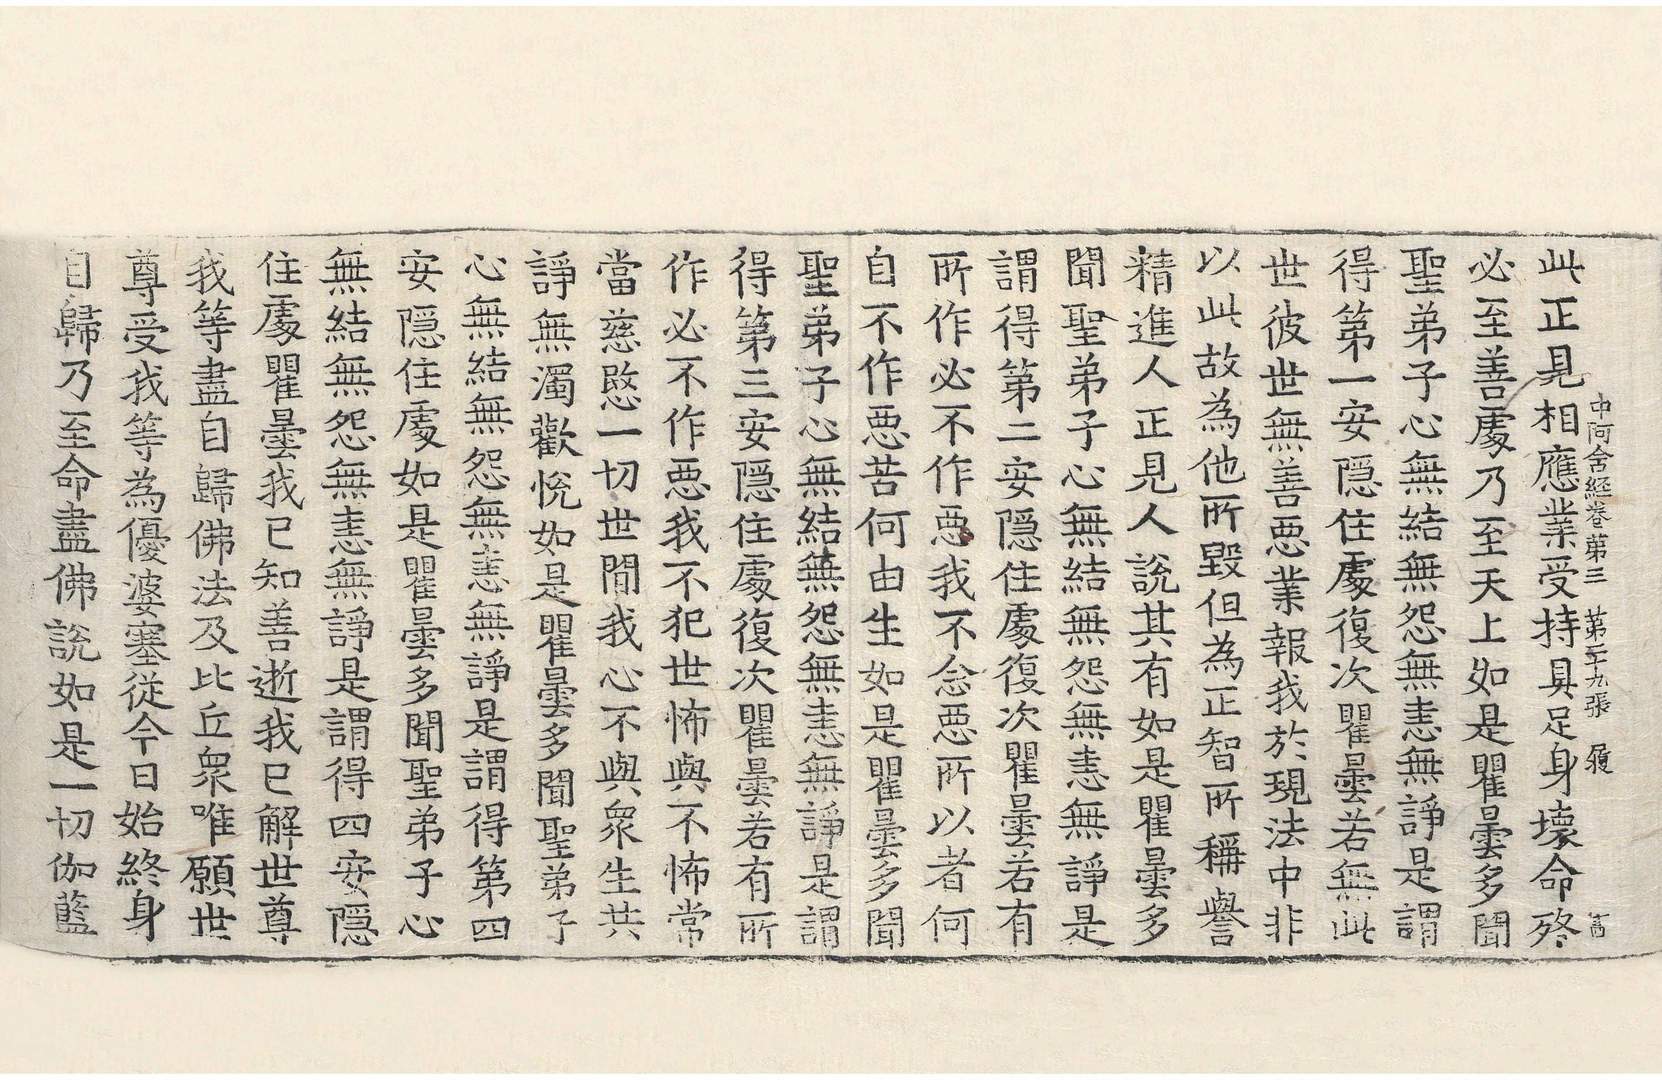 中阿含経巻苐三 苐 九張 履
此正見相應業受持具足身壞命終
必至善處乃至天上如是瞿曇多聞
聖弟子心無結無怨無恚無諍是謂
得第一安隱住處復次瞿曇若無此
世彼世無善惡業報我於現法中非
以此故為他所毀但為正智所稱譽
精進人正見人說其有如是瞿曇多
聞聖弟子心無結無怨無恚無諍是
謂得第二安隱住處復次瞿曇若有
所作必不作惡我不念惡所以者何
自不作惡苦何由生如是瞿曇多聞
聖弟子心無結無怨無恚無諍是謂
得第三安隱住處復次瞿曇若有所
作必不作惡我不犯世怖與不怖常
當慈愍一切世間我心不與眾生共
諍無濁歡悅如是瞿曇多聞聖弟子
心無結無怨無恚無諍是謂得第四
安隱住處如是瞿曇多聞聖弟子心
無結無怨無恚無諍是謂得四安隱
住處瞿曇我已知善逝我已解世尊
我等盡自歸佛法及比丘眾唯願世
尊受我等為優婆塞從今日始終身
自歸乃至命盡佛說如是一切伽藍